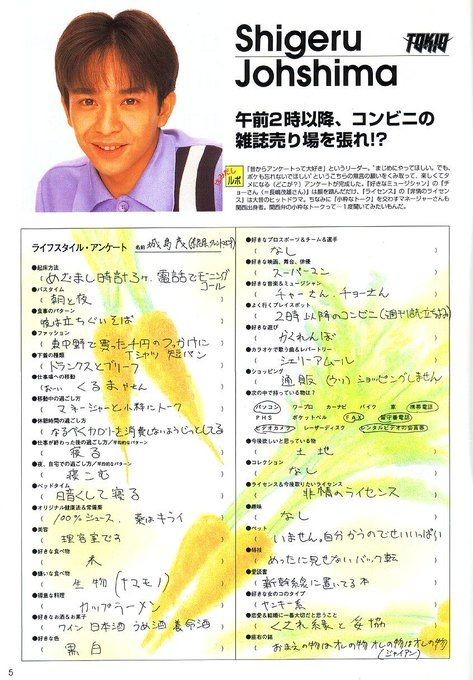 Shigeru
Johshima
TOKIO
午前2時以降、コンビニの
雑誌売り場を張れ!?
はみだし
ルポ
「昔からアンケートって大好き」というリーダー。“まじめにやってほしい。でも、
ボケも忘れないでほしい”というこちらの無言の願いをくみ取って、楽しくてタ
メになる(どこが?)アンケートが完成した。「好きなミュージシャン」の「チ
ョーさん」(=長嶋茂雄さん)は顔を読んだだけ、「ライセンス」の「非情のライセン
ス」は大昔のヒットドラマ。ちなみに「小粋なトーク」を交わすマネージャーさんも
関西出身者。関西弁の小粋なトークって一度聞いてみたいもんだ。
ライフスタイル・アンケート
名前 城島茂
●起床方法
めざまし時計3ヶ、電話でモーニング
コール
●バスタイム
朝と夜
●食事のパターン
昼は立ちぐいそば
●ファッション
東中野で買った千円のブッかけに
Tシャツ 短パン
●下着の種類
トランクスとブリーフ
●仕事場への移動
くるま
●移動中の過ごし方
マネージャーと小粋にトーク
●休憩時間の過ごし方
なるべくカロリーを消費しないようじっとしてる
●仕事が終わった後の過ごし方/平均的なパターン
寝る
●夜、自宅での過ごし方/平均的なパターン
寝こむ
●ベッドタイム
暗くして寝る
●オリジナル健康法&常備薬
100%ジュース、薬はキライ
●美容
理容室です
●好きな食べ物
米
●嫌いな食べ物
生物(ナマモノ)
●得意な料理
カップラーメン
●好きなお酒&お菓子
ワイン 日本酒 うめ酒 養命酒
●好きな色
黒 白
●好きなプロスポーツ&チーム&選手
なし
●好きな映画、舞台、俳優
スーパーマン
●好きな音楽&ミュージシャン
チャーさん、チョーさん
●よく行くプレイスポット
2時以降のコンビニ(週刊誌立ち読み)
●好きな遊び
かくれんぼ
●カラオケで歌う曲&レパートリー
シェリーアムール
●ショッピング
通販(ウソ)ショッピングしません
●次の中で持っている物は?
パソコン ワープロ カーナビ バイク 車 携帯電話
PHS ポケットベル FAX 留守番電話
ビデオカメラ レーザーディスク レンタルビデオの会員券
●今後欲しいと思っている物
土地
●コレクション
なし
●ライセンス&今後取りたいライセンス
非情のライセンス
●趣味
なし
●ペット
いません。自分かうのでせいいっぱい
●特技
めったに見せないバック転
●愛読書
新幹線に置いてる本
●好きな女の子のタイプ
ヤンキー系
●恋愛&結婚に一番大切だと思うこと
くされ縁と妥協
●座右の銘
おまえの物はオレの物 オレの物はオレの物
(ジャイアン)
5